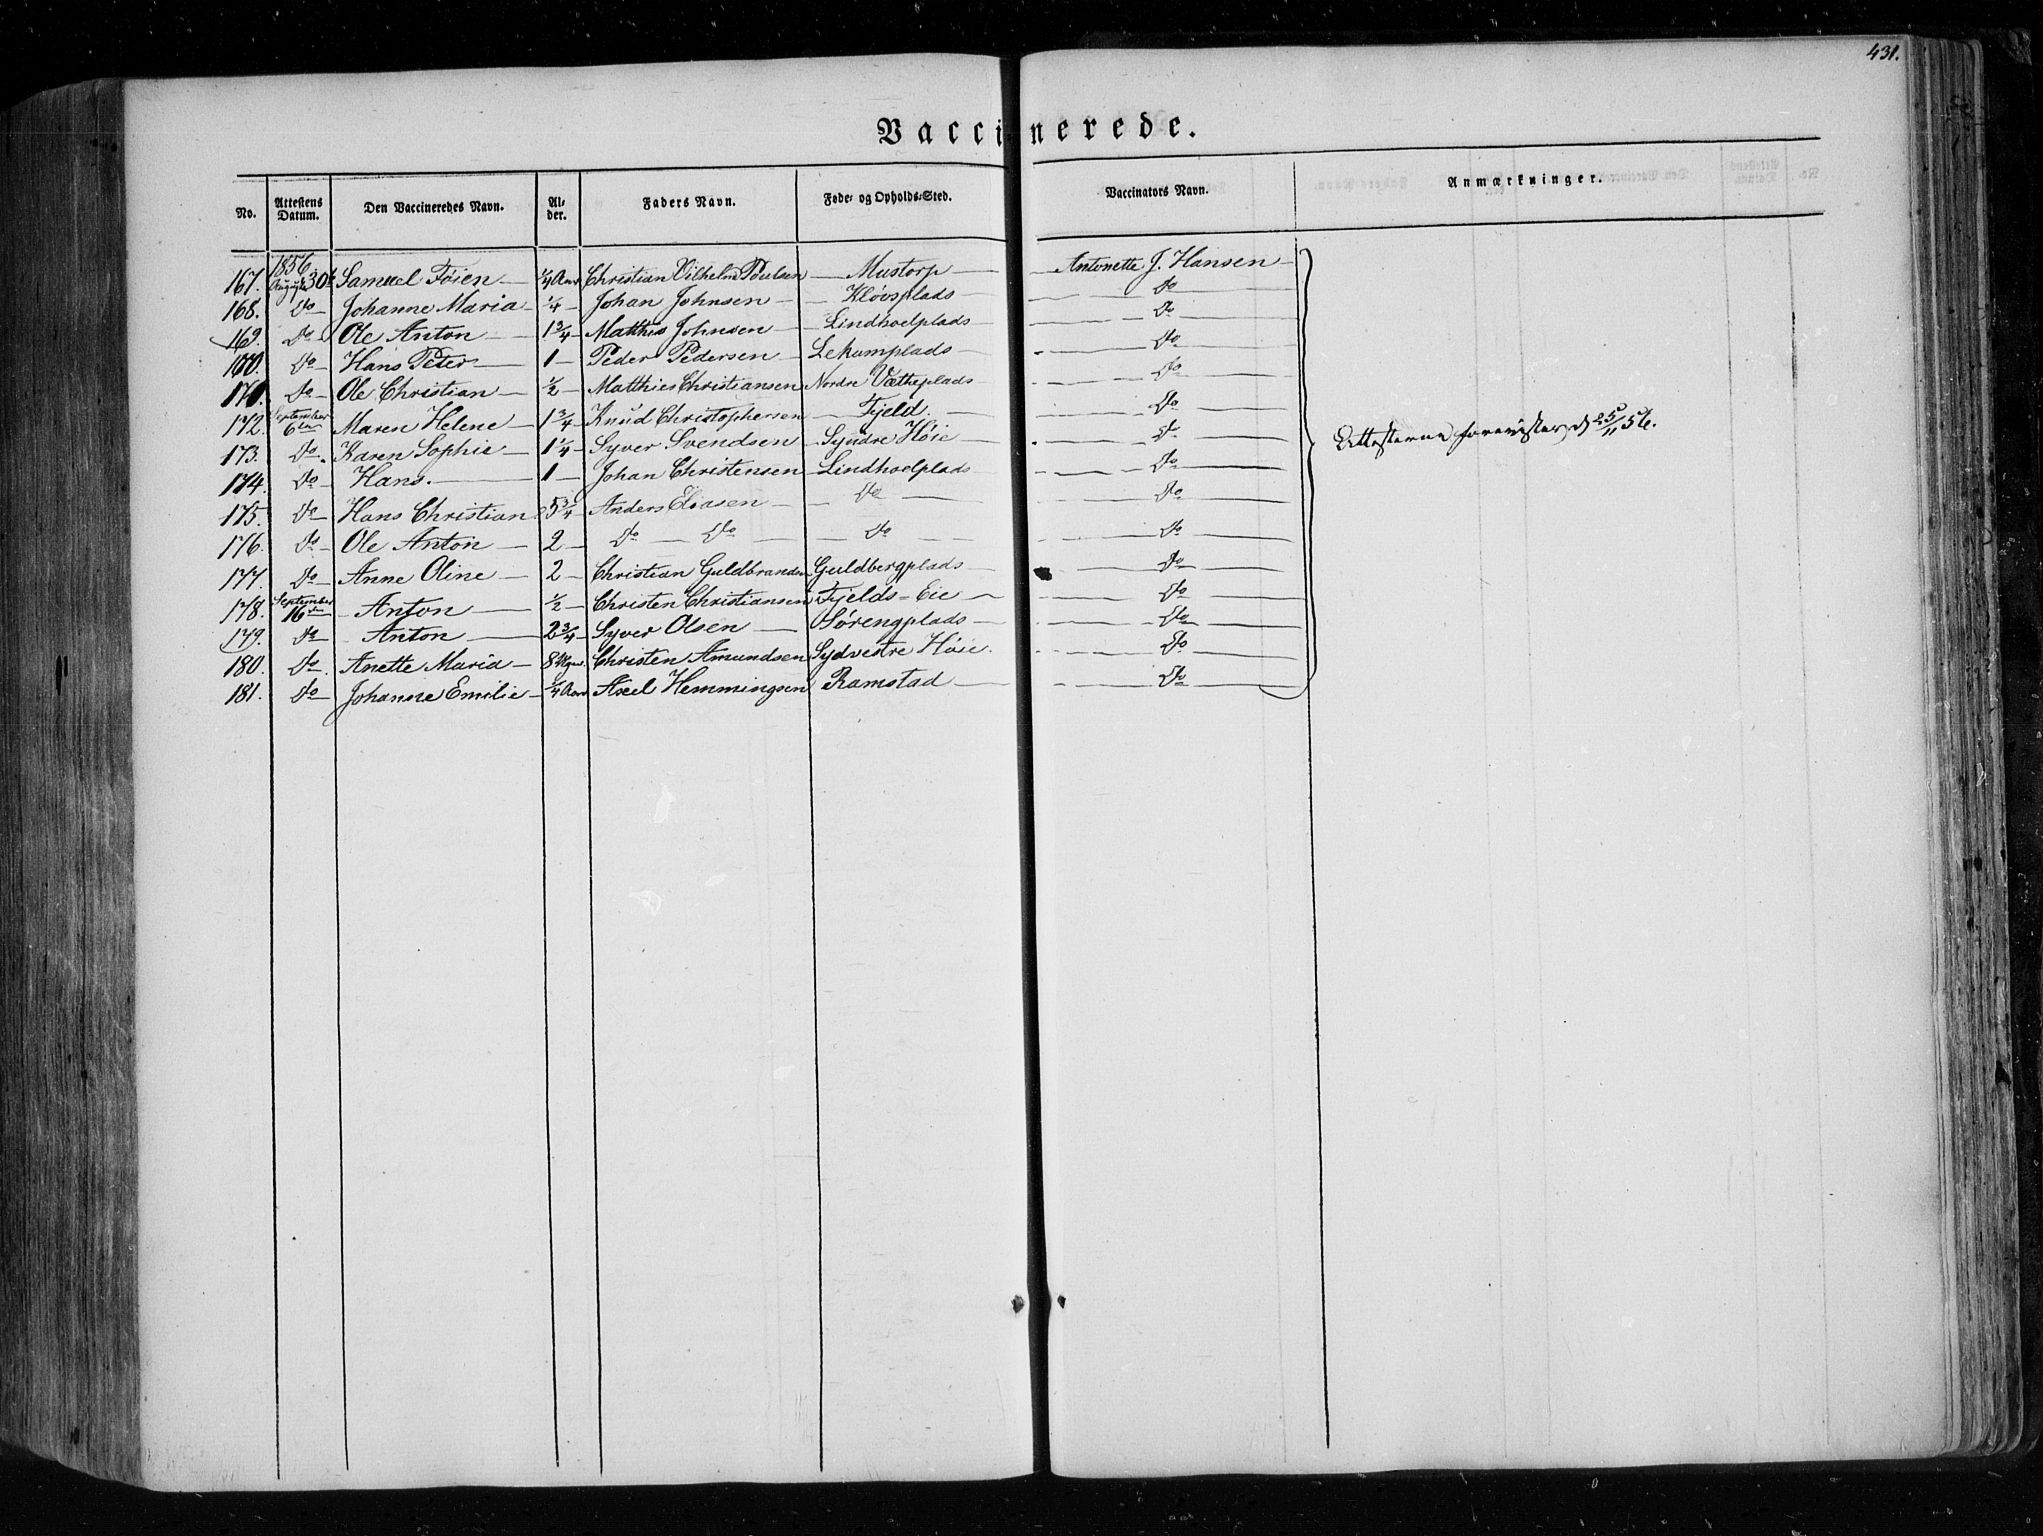 431.
Vaccinerede.
No. Attestens Datum. Den Vaccineredes Navn. Alder. Faders Navn. Føde- og Opholds-Sted. Vaccinators Navn. Anmærkninger.
1856
167. August 30te Samuel Töien — ¼ Aar Christian Vilhelm Poulsen — Mustorp — Antonette J. Hansen —
168. Do — Johanne Maria — ¼ — Johan Johnsen — Kløvsplads — Do
169. Do — Ole Anton — 1¾ Matthis Johnsen — Lindhoelplads — Do
170. Do — Hans Peter — 1 — Peder Pedersen — Lekumplads — Do
171. Do — Ole Christian — ½ — Matthies Christiansen Nordre Vætheplads — Do
172. September 6te Maren Helene — 1¾ Knud Christophersen — Fjeld. — Do
173. Do — Karen Sophie — 1¼ Syver Svendsen — Syndre Höie — Do
Attesterne foreviste d 25/11 56.
174. Do — Hans. — 1 — Johan Christensen — Lindhoelplads — Do
175. Do — Hans Christian 5¾ Anders Eliasen — Do — Do
176. Do — Ole Anton — 2 — Do — Do — Do — Do
177. Do — Anne Oline — 2 — Christian Guldbrandsen Guldbergplads — Do
178. September 16de Anton — ½ — Christen Christiansen Fjelds-Eie — Do
179. Do — Anton — 2¾ Syver Olsen — Sørengplads — Do
180. Do — Anette Maria — 8 Uger Christen Amundsen Sydvestre Höie. Do
181. Do — Johanne Emilie — ¼ Aar Axel Hemmingsen Ramstad — Do